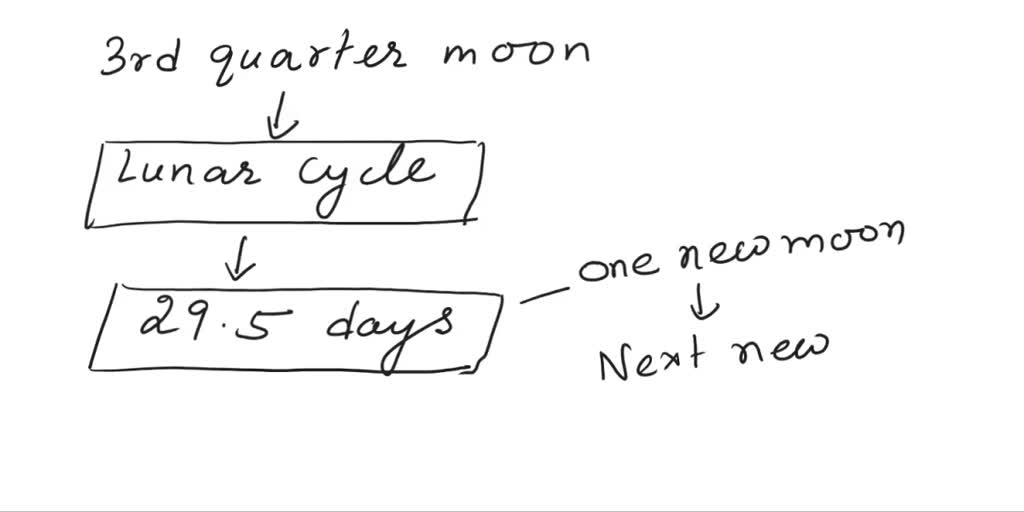 3rd quarter moon
Lunar cycle
29.5 days
one new moon
Next new